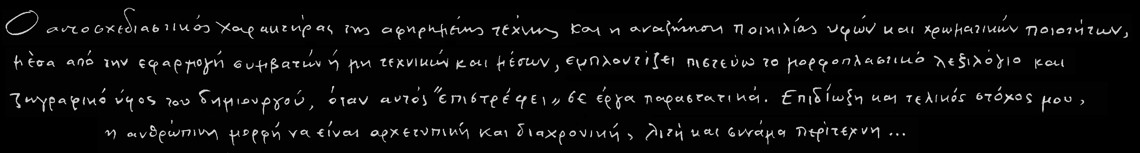 Ο αυτοσχεδιαστικός χαρακτήρας της αφηρημένης τέχνης και η αναζήτηση ποικιλίας υφών και χρωματικών ποιοτήτων,
μέσα από την εφαρμογή συμβατών ή μη τεχνικών και μέσων, εμπλουτίζει πιστεύω το μορφοπλαστικό λεξιλόγιο και
ζωγραφικό ύφος του δημιουργού, όταν αυτός "επιστρέφει" σε έργα παραστατικά. Επιδίωξη και τελικός στόχος μου,
η ανθρώπινη μορφή να είναι αρχετυπική και διαχρονική, λιτή και συνάμα περίτεχνη...